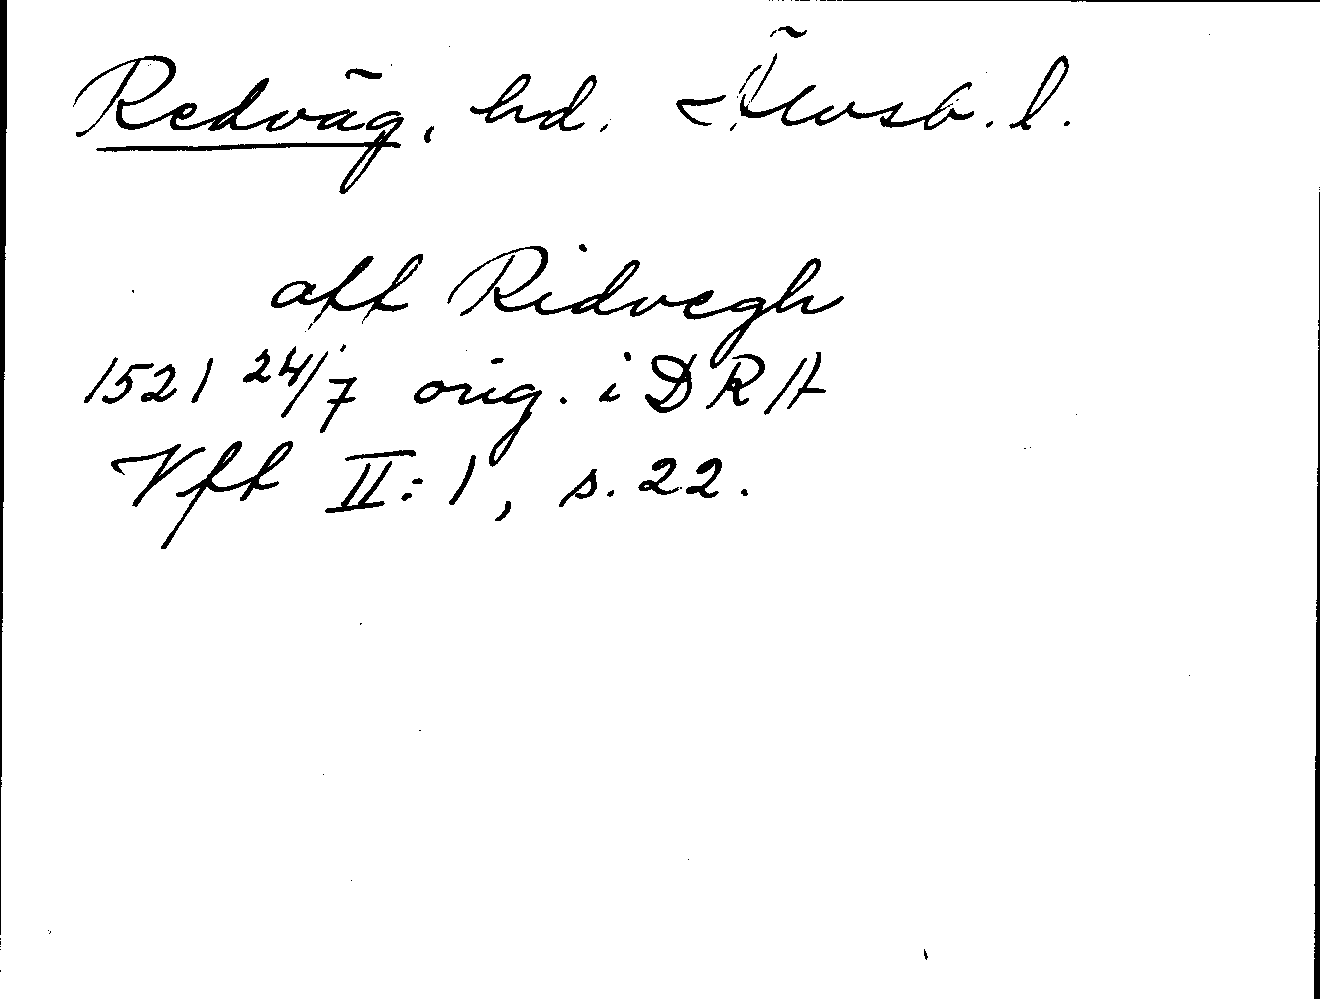 Redväg, hd. Älvsb. l.
aff Ridvegh
1521 24/7 orig. i DRA
Vff II:1, s. 22.